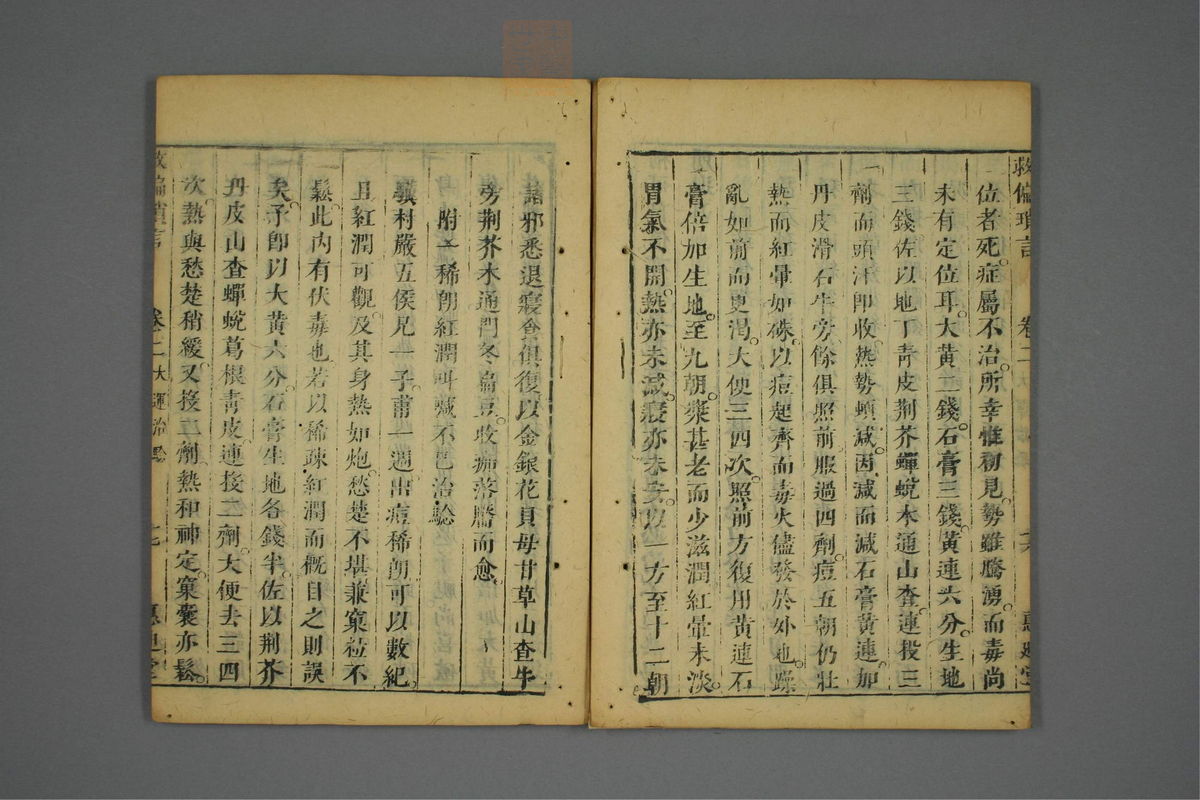 救偏瑣言 卷二 大運治 十六 惠迪堂
位者死症屬不治所幸惟初見勢雖騰湧而毒尚
未有定位耳大黃三錢石膏三錢黃連六分生地
三錢佐以地丁青皮荆芥蟬蛻木通山查連投三
劑而頭汗即收熱勢頓減因減而減石膏黃連加
丹皮滑石牛旁餘俱照前服過四劑痘五朝仍壯
熱而紅暈如硃以痘起齊而毒火儘發於外也躁
亂如前而更渴大便三四次照前方復用黃連石
膏倍加生地至九朝漿甚老而少滋潤紅暈未淡
胃氣不開熱亦未減寢亦未安以一方至十二朝
諸邪悉退寢食俱復以金銀花貝母甘草山查牛
旁荆芥木通門冬扁豆收痂落靨而愈
附一稀朗紅潤叫喊不已治驗
驥村嚴五侯兄一子甫一週出痘稀朗可以數紀
且紅潤可觀及其身熱如炮愁楚不堪兼窠粒不
鬆此內有伏毒也若以稀疎紅潤而概目之則誤
矣予即以大黃六分石膏生地各錢半佐以荆芥
丹皮山查蟬蛻葛根青皮連投二劑大便去三四
次熱與愁楚稍緩又投二劑熱和神定窠囊亦鬆
救偏瑣言 卷二 大運治驗 十七 惠迪堂